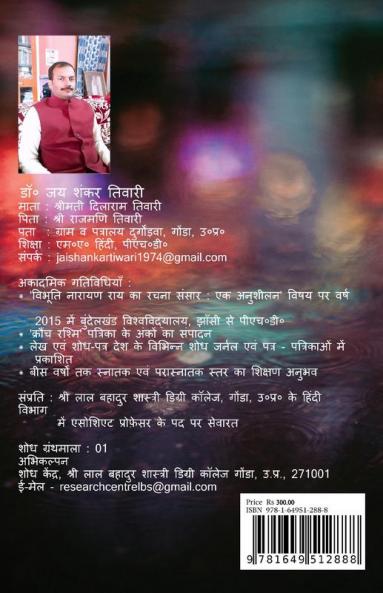 डॉ० जय शंकर तिवारी
माता : श्रीमती दिलाराम तिवारी
पिता : श्री राजमणि तिवारी
पता : ग्राम व पत्रालय दुर्गोड़वा, गोंडा, उ०प्र०
शिक्षा : एम०ए० हिंदी, पीएच०डी०
संपर्क : jaishankartiwari1974@gmail.com
अकादमिक गतिविधियाँ :
• 'विभूति नारायण राय का रचना संसार : एक अनुशीलन' विषय पर वर्ष
2015 में बुंदेलखंड विश्वविद्यालय, झाँसी से पीएच०डी०
• 'क्रौंच रश्मि' पत्रिका के अंकों का संपादन
• लेख एवं शोध-पत्र देश के विभिन्न शोध जर्नल एवं पत्र - पत्रिकाओं में
प्रकाशित
• बीस वर्षों तक स्नातक एवं परास्नातक स्तर का शिक्षण अनुभव
संप्रति : श्री लाल बहादुर शास्त्री डिग्री कॉलेज, गोंडा, उ०प्र० के हिंदी
विभाग
में एसोशिएट प्रोफ़ेसर के पद पर सेवारत
शोध ग्रंथमाला : 01
अभिकल्पन
शोध केंद्र, श्री लाल बहादुर शास्त्री डिग्री कॉलेज गोंडा, उ.प्र., 271001
ई-मेल - researchcentrelbs@gmail.com
Price Rs 300.00
ISBN 978-1-64951-288-8
9 781649 512888